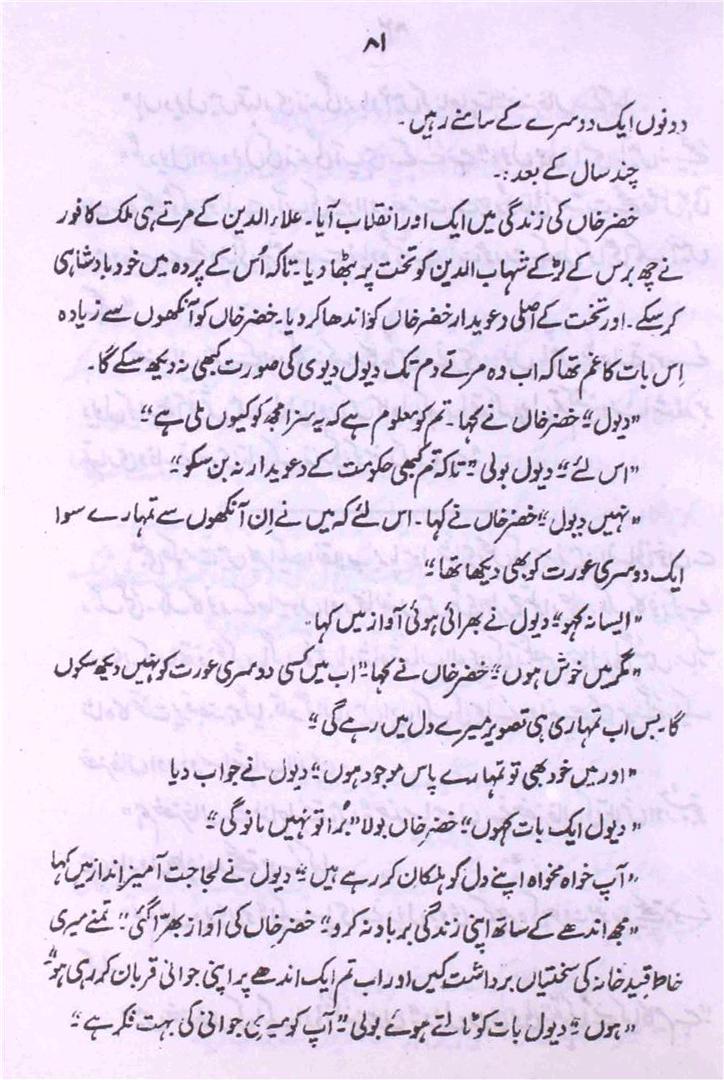 ۸۱
دونوں ایک دوسرے کے سامنے رہیں۔
چند سال کے بعد:۔
خضر خاں کی زندگی میں ایک اور انقلاب آیا۔ علاء الدین کے مرتے ہی ملک کافور
نے چھ برس کے لڑکے شہاب الدین کو تخت پر بٹھا دیا۔ تاکہ اُس کے پردہ میں خود بادشاہی
کر سکے۔ اور تخت کے اصلی دعویدار خضر خاں کو اندھا کر دیا۔ خضر خاں کو آنکھوں سے زیادہ
اِس بات کا غم تھا کہ اب وہ مرتے دم تک دیول دیوی کی صورت کبھی نہ دیکھ سکے گا۔
”دیول“ خضر خاں نے کہا۔ تم کو معلوم ہے کہ یہ سزا مجھ کو کیوں ملی ہے“
”اس لئے“ دیول بولی ”تاکہ تم کبھی حکومت کے دعویدار نہ بن سکو“
”نہیں دیول“ خضر خاں نے کہا۔ اس لئے کہ میں نے اِن آنکھوں سے تمہارے سوا
ایک دوسری عورت کو بھی دیکھا تھا“
”ایسا نہ کہو“ دیول نے بھرائی ہوئی آواز میں کہا۔
”مگر میں خوش ہوں“ خضر خاں نے کہا ”اب میں کسی دوسری عورت کو نہیں دیکھ سکوں
گا۔ بس اب تمہاری ہی تصویر میرے دل میں رہے گی“
”اور میں خود بھی تو تمہارے پاس موجود ہوں“ دیول نے جواب دیا
”دیول ایک بات کہوں“ خضر خاں بولا ”بُرا تو نہیں مانو گی“
”آپ خواہ مخواہ اپنے دل کو ہلکان کر رہے ہیں“ دیول نے لجاجت آمیز انداز میں کہا
”مجھ اندھے کے ساتھ اپنی زندگی برباد نہ کرو“ خضر خاں کی آواز بھرّا گئی“ تمنے میری
خاطر قید خانہ کی سختیاں برداشت کیں اور اب تم ایک اندھے پر اپنی جوانی قربان کر رہی ہو“
”ہوں“ دیول بات کو ٹالتے ہوئے بولی ”آپ کو میری جوانی کی بہت فکر ہے“